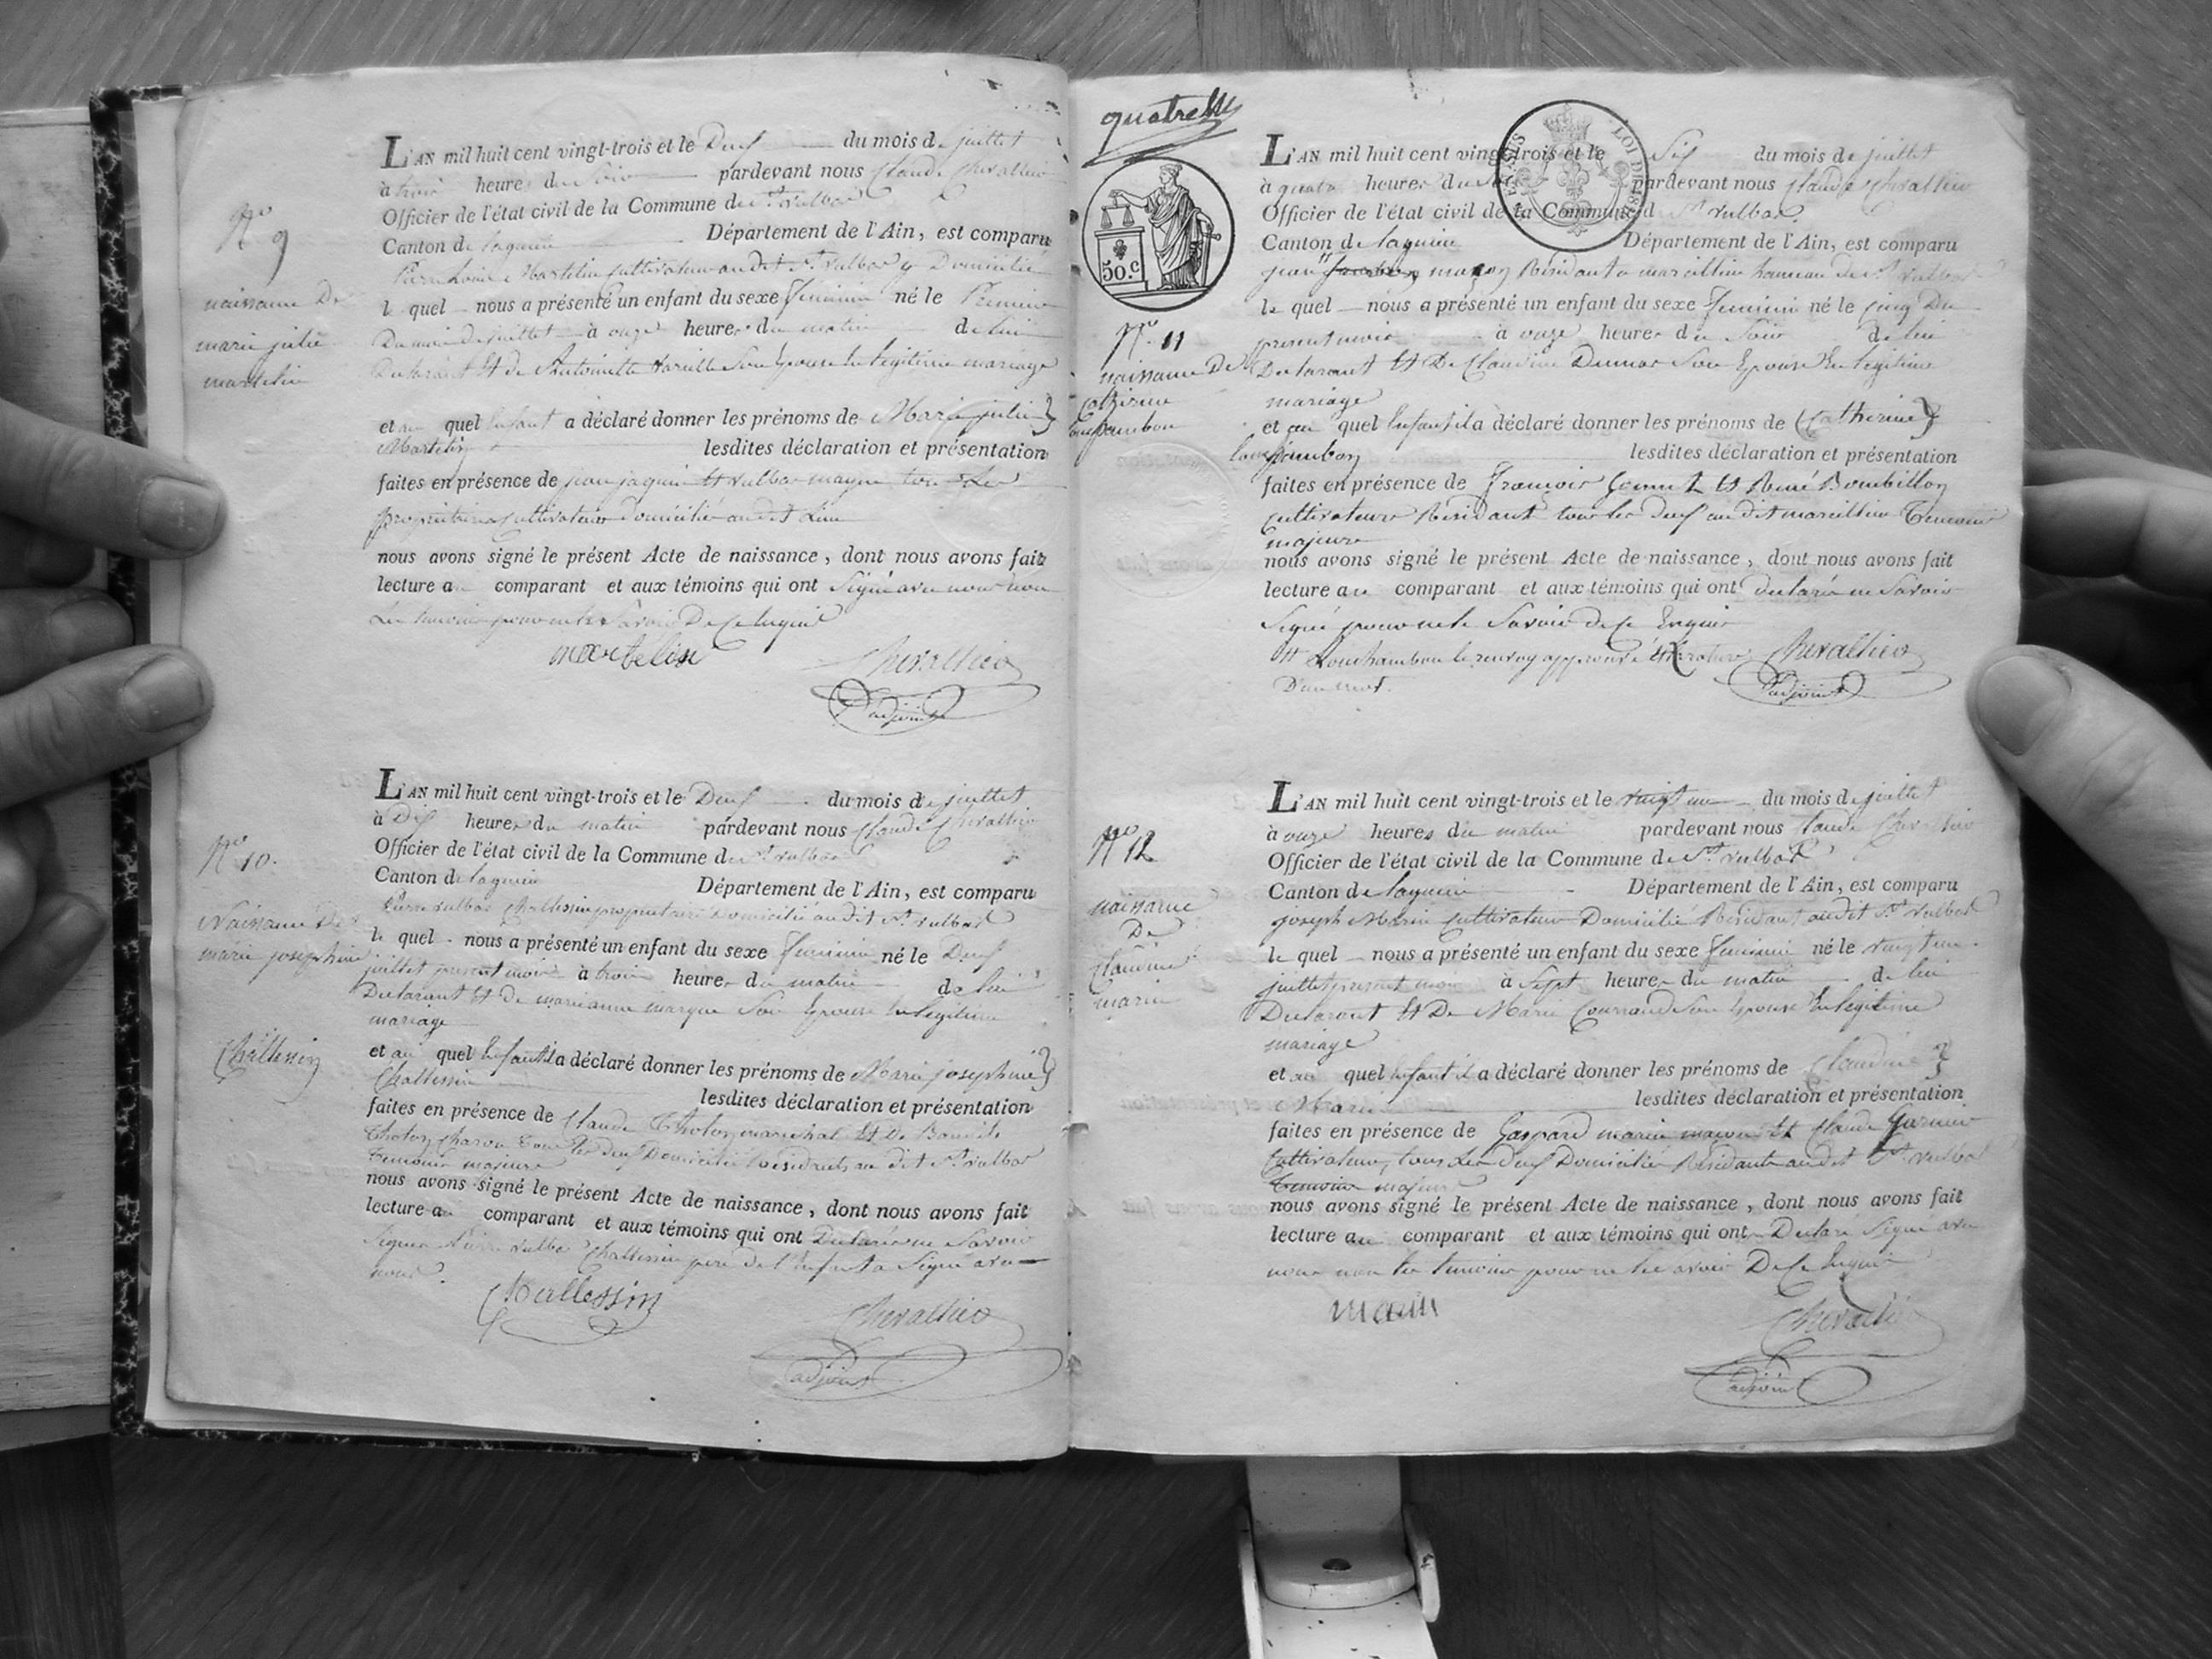 N° 9
naissance De
marie julie
martelin
L'AN mil huit cent vingt-trois et le Deux du mois de juillet
à trois heures du Soir pardevant nous Claude Chevallier
Officier de l'état civil de la Commune de St Vulbas
Canton de lagnieu Département de l'Ain, est comparu
Pierre Martelin cultivateur audit St Vulbas y Domicilié
le quel nous a présenté un enfant du sexe feminin né le Premier
Du mois de juillet à onze heures du matin de lui
Declarant Et de Antoinette son Epouse En legitime mariage
et au quel Enfant a déclaré donner les prénoms de Marie julie
Martelin lesdites déclaration et présentation
faites en présence de jean jaquin Et vulbas tous Les
proprietaires cultivateurs domiciliés audit Lieu
nous avons signé le présent Acte de naissance, dont nous avons fait
lecture au comparant et aux témoins qui ont Signé avec nous non
Les temoins pour ne le Savoir De Ce Enquis
martelin Chevallier
adjoint
N° 10.
Naissance De
marie josephine
Challessin
L'AN mil huit cent vingt-trois et le Deux du mois de juillet
à Dix heures du matin pardevant nous Claude Chevallier
Officier de l'état civil de la Commune de St vulbas
Canton de lagnieu Département de l'Ain, est comparu
Pierre vulbas Challessin proprietaire Domicilié audit St vulbas
le quel nous a présenté un enfant du sexe feminin né le Deux
juillet present mois à trois heures du matin de lui
Declarant Et de marianne margue Son Epouse En legitime
mariage
et au quel Enfant il a déclaré donner les prénoms de Marie josephine
Challessin lesdites déclaration et présentation
faites en présence de Claude Tholon marechal Et De
Tholon charon tous les deux Domiciliés Residents au dit St vulbas
temoins majeurs
nous avons signé le présent Acte de naissance, dont nous avons fait
lecture au comparant et aux témoins qui ont Declaré ne Savoir
Signer Pierre vulbas Challessin pere de l'Enfant a Signé avec
nous.
Challessin Chevallier
adjoint
quatre
50.c
LOI DE 1816
N° 11
naissance De
Catherine
Louchambon
L'AN mil huit cent vingt-trois et le Six du mois de juillet
à quatre heures du Soir pardevant nous Claude Chevallier
Officier de l'état civil de la Commune de St vulbas
Canton de lagnieu Département de l'Ain, est comparu
jean maçon Residant a marcillieu hameau de St vulbas
le quel nous a présenté un enfant du sexe feminin né le cinq Du
present mois à onze heures du Soir de lui
Declarant Et De Claudine Dumas Son Epouse En legitime
mariage
et au quel Enfant il a déclaré donner les prénoms de Catherine
Louchambon lesdites déclaration et présentation
faites en présence de François Et René Bourbillon
cultivateurs Residant tous les deux au dit marcillieu Temoins
majeurs
nous avons signé le présent Acte de naissance, dont nous avons fait
lecture au comparant et aux témoins qui ont declaré ne Savoir
Signé pour ne le Savoir de Ce Enquis
Louchambon le renvoy approuvé Et rature
D'un mot. Chevallier
adjoint
N° 12
naissance
De
Claudine
marin
L'AN mil huit cent vingt-trois et le vingt un du mois de juillet
à onze heures du matin pardevant nous Claude Chevallier
Officier de l'état civil de la Commune de St vulbas
Canton de lagnieu Département de l'Ain, est comparu
joseph Marin cultivateur Domicilié Residant audit St vulbas
le quel nous a présenté un enfant du sexe feminin né le vingt un
juillet present mois à Sept heures du matin de lui
Declarant Et De Marie Courrand Son Epouse En legitime
mariage
et au quel Enfant il a déclaré donner les prénoms de Claudine
Marin lesdites déclaration et présentation
faites en présence de Gaspard marin maçon Et Claude Garnier
Cultivateur, tous Les deux Domiciliés Residant audit St vulbas
Temoins majeurs
nous avons signé le présent Acte de naissance, dont nous avons fait
lecture au comparant et aux témoins qui ont Declaré Signé avec
nous non les temoins pour ne le Savoir De Ce Enquis
marin Chevallier
adjoint